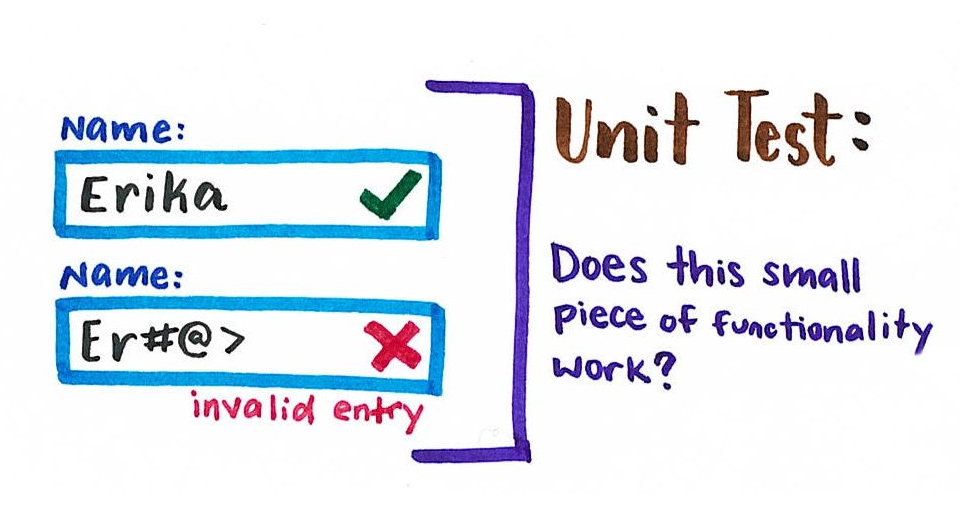 Name:
Erika
Name:
Er#@>
invalid entry
Unit Test:
Does this small
piece of functionality
work?